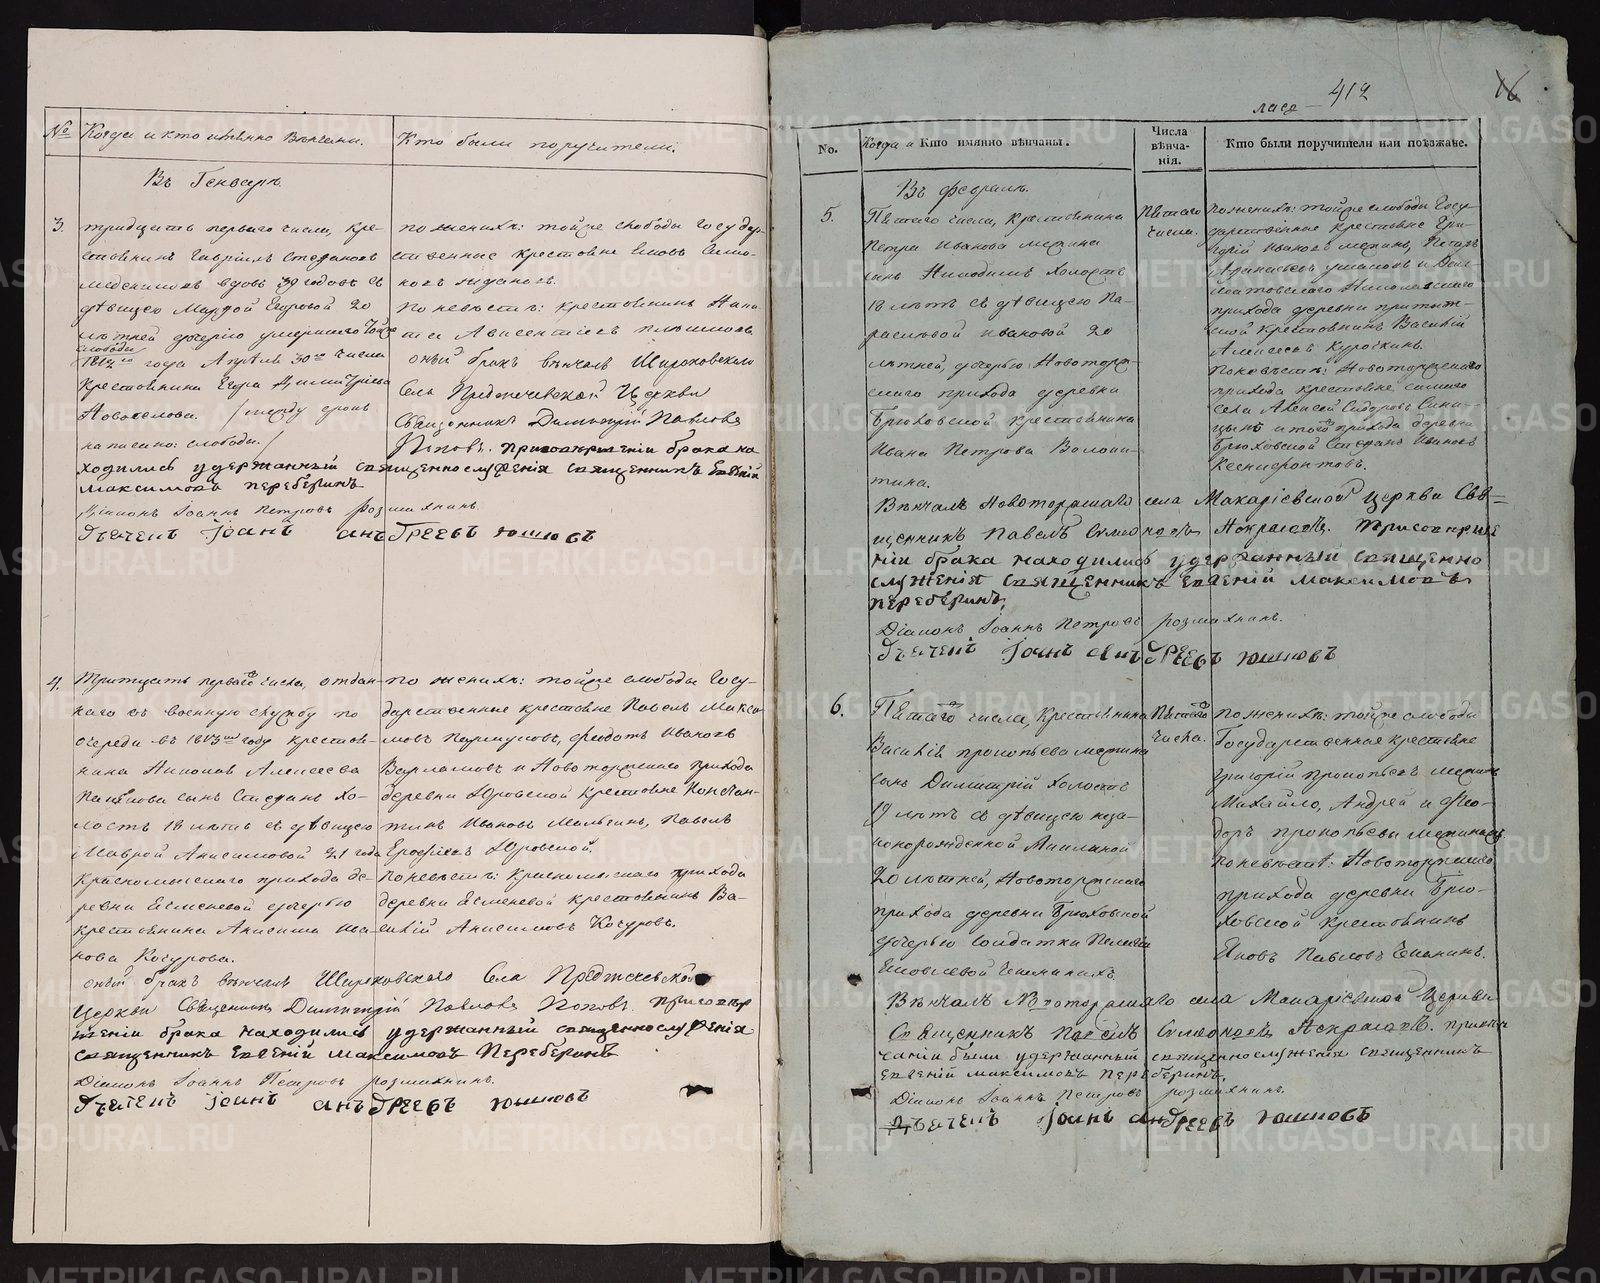 № Когда и кто имянно Венчаны. Кто были поручители.
Въ Генварѣ
3. тридцать перваго числа, кре-
стьянинъ Гавріилъ Стефановъ
вдовъ 39 годовъ съ
дѣвицею Марѳой Егоровой 20
лѣтней дочерью умершаго
слободы
года Апрѣля 30го числа
крестьянина Егора Димитріева
Новоселова. /между строкъ
написано: слободы./
по женихѣ: тойже слободы Государ-
ственные крестьяне
по невѣстѣ: крестьянинъ
оный бракъ вѣнчалъ Широковскаго
Села Предтечевской Церкви
Священникъ Димитрій Павловъ
Поповъ. присовершеніи брака на
ходились удержанный священнослуженія священникъ Евгеній
Максимовъ Переберинъ
Діаконъ Іоаннъ Петровъ розмахнинъ.
дьячекъ Іоанъ андреевъ юшковъ
4. Тритцать перваго числа, отдан-
наго въ военную службу по
очереди въ году крестья-
нина Алексеева
сынъ Стефанъ хо-
лостъ 18 лѣтъ съ дѣвицею
Маврой Анисимовой 21 года
Красномысскаго прихода де-
ревни дочерью
крестьянина Анисима Ива-
нова Косурова.
по женихѣ: тойже слободы Госу-
дарственные крестьяне Павелъ Макси-
мовъ Ивановъ
Варламовъ и Новоторжскаго прихода
деревни Юровской крестьяне Констан-
тинъ Ивановъ Павелъ
Юровской.
По невѣстѣ: Красномысскаго прихода
деревни крестьянинъ Ва-
силій Анисимовъ Косуровъ.
оный бракъ вѣнчалъ Широковскаго Села Предтечевской
Церкви Священникъ Димитрій Павловъ Поповъ. Присовер
шеніи брака находились удержанный священнослуженія
священникъ Евгеній Максимовъ Переберинъ
Діаконъ Іоаннъ Петровъ розмахнинъ.
дьячекъ Іоанъ андреевъ юшковъ
412
16
No. Когда и Кто имянно вѣнчаны. Числа вѣнча-нія. Кто были поручители или поѣзжане.
Въ Февралѣ.
5. Пятаго числа, крестьянина
Петра Иванова
сынъ Никодимъ холостъ
18 лѣтъ съ дѣвицею Па-
расковьей Ивановой 20
лѣтней, дочерью Новоторж-
скаго прихода деревни
Брюховской крестьянина
Ивана Петрова Волоки-
тина.
Пятаго
числа.
по женихѣ: тойже слободы Госу-
дарственные крестьяне Гри-
горій Ивановъ Петръ
и Дал-
матовскаго Николаевскаго
прихода деревни
крестьянинъ Василій
Алексеевъ Курочкинъ.
по невѣстѣ: Новоторжскаго
прихода крестьяне самаго
села Алексей Сидоровъ Сини-
цынъ и тойже прихода деревни
Брюховской Стефанъ Ивановъ
Ксенофонтовъ.
Вѣнчалъ Новоторжскаго села Макаріевской церкви Свя-
щенникъ Павелъ Симоновъ Некрасовъ. Присоверше
ніи брака находились удержанный священно
служенія священникъ Евгеній Максимовъ
переберинъ,
Діаконъ Іоаннъ Петровъ розмахнинъ.
дьячекъ Іоанъ андреевъ юшковъ
6. Пятаго числа, Крестьянина
Василія прокопьева
сынъ Димитрій холостъ
19 лѣтъ съ дѣвицею неза-
коннорожденной
20 лѣтней, Новоторжскаго
прихода деревни Брюховской
дочерью солдатки Пелагеи
Яковлевой
Пятаго
числа.
по женихѣ: тойже слободы
Государственные крестьяне
Григорій прокопьевъ
Михайло, Андрей и Фео-
доръ прокопьевы
по невѣстѣ: Новоторжскаго
прихода деревни Брю-
ховской крестьянинъ
Яковъ Павловъ
Вѣнчалъ Новоторжскаго села Макаріевской Церкви
Священникъ Павелъ Симоновъ Некрасовъ. привѣн
чаніи были удержанный священнослуженія священникъ
Евгеній Максимовъ переберинъ,
Діаконъ Іоаннъ Петровъ розмахнинъ.
дьячекъ Іоанъ андреевъ юшковъ
METRIKI.GASO-URAL.RU